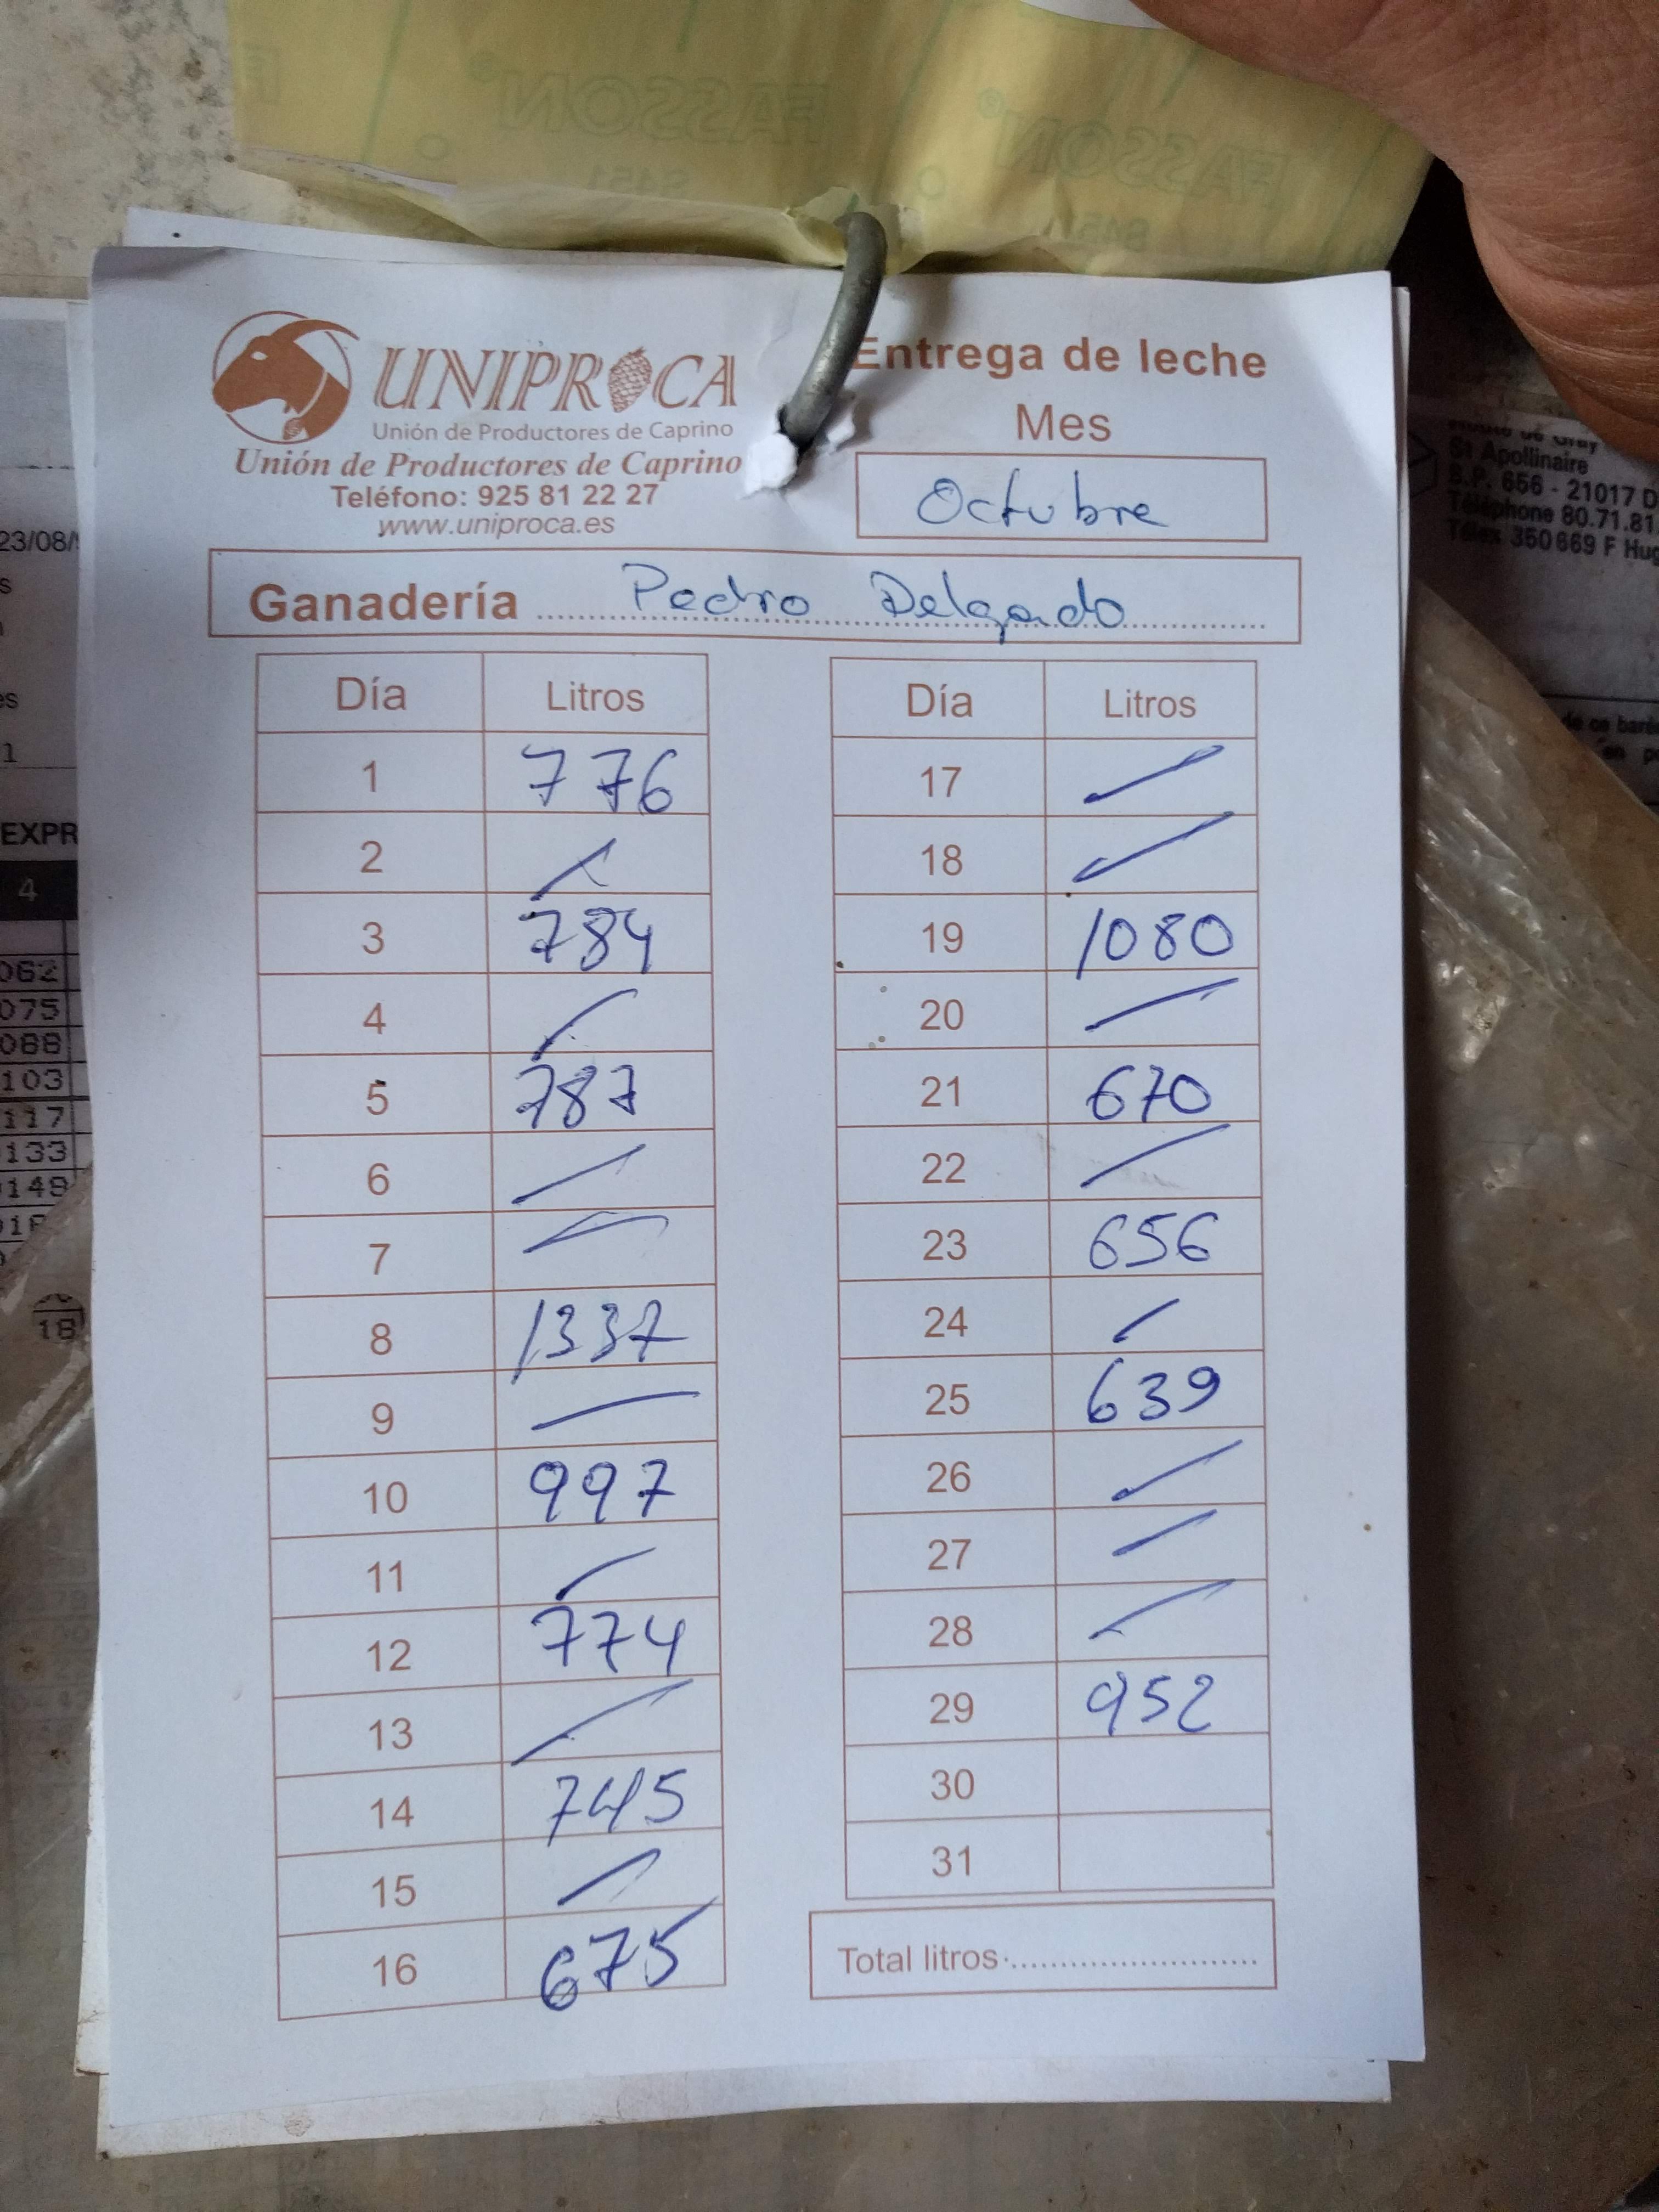 FASSON
FASSON
S451
UNIPROCA
Unión de Productores de Caprino
Unión de Productores de Caprino
Teléfono: 925 81 22 27
www.uniproca.es
Entrega de leche
Mes
Octubre
Ganadería Pedro Delgado
Día Litros
1 776
2
3 784
4
5 787
6
7
8 1337
9
10 997
11
12 774
13
14 745
15
16 675
Día Litros
17
18
19 1080
20
21 670
22
23 656
24
25 639
26
27
28
29 952
30
31
Total litros
23/08/
EXPR
4
062
075
088
103
117
133
149
18
St Apollinaire
B.P. 656 - 21017 D
Téléphone 80.71.81.
Télex 350669 F Hug